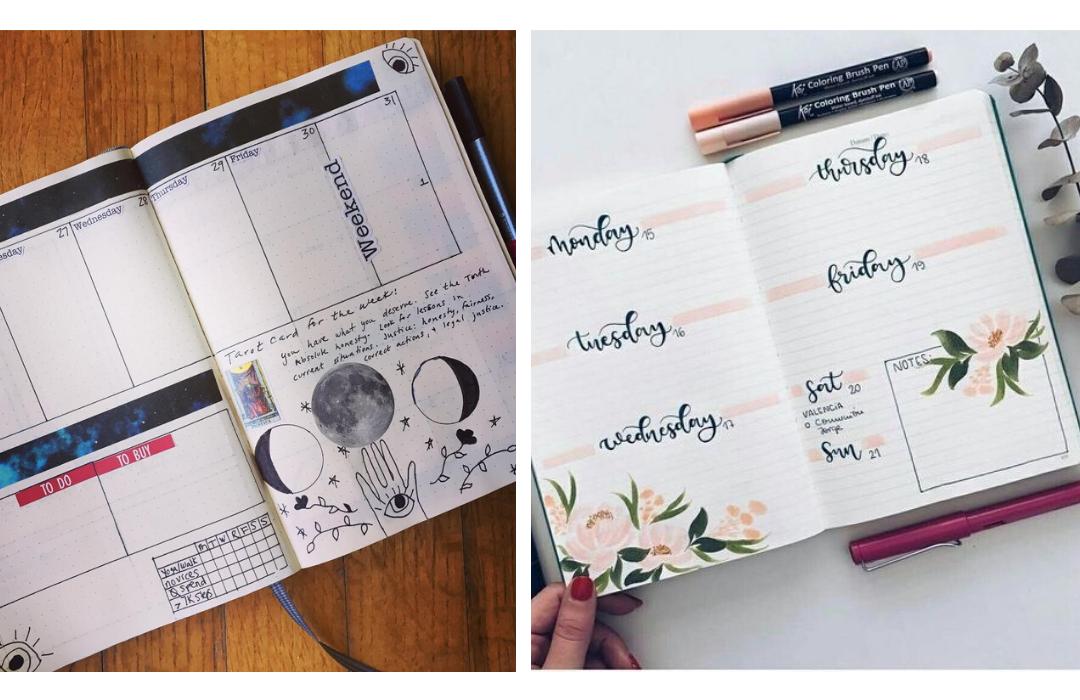 31
30
Weekend
1
29
Friday
Thursday
28
Wednesday
27
Tarot Card for the week!
you have what you deserve. See the Truth
Absolute honesty. Look for lessons in
current situations. Justice: honesty, fairness,
correct actions, legal justice.
TO DO
TO BUY
M T W R F S S
yoga/walk
no vices
0 spend
7.1K step
Koi Coloring Brush Pen AP
Koi Coloring Brush Pen AP
monday 15
tuesday 16
wednesday 17
thursday 18
friday 19
sat 20
VALENCIA
o Comunión
Jorge
sun 21
NOTES: